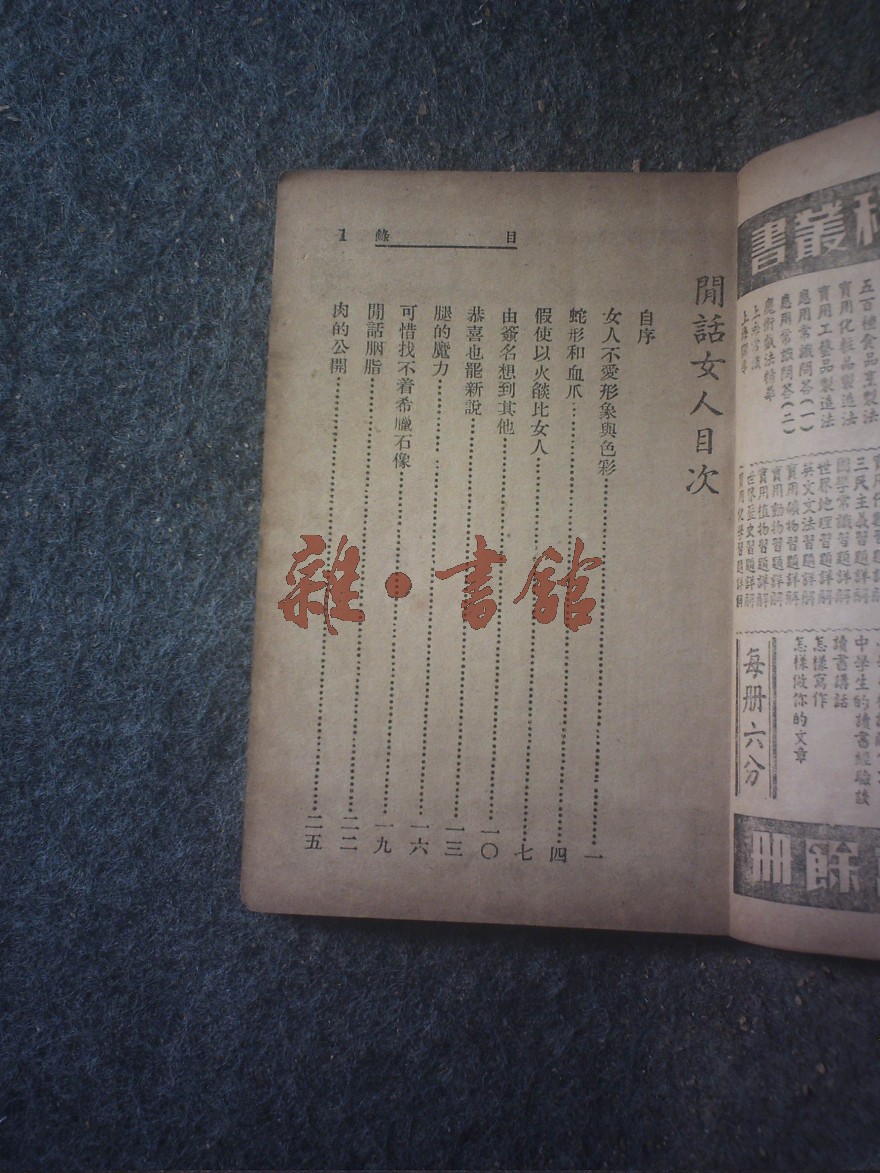 書叢
五百種食品烹製法
實用化粧品製造法
實用工藝品製造法
應用常識問答(一)
應用常識問答(二)
三民主義習題詳解
國學常識習題詳解
世界地理習題詳解
英文文法習題詳解
實用礦物習題詳解
實用動物習題詳解
實用植物習題詳解
世界歷史習題詳解
中學生的讀書經驗談
讀書講話
怎樣寫作
怎樣做你的文章
每册六分
册餘
閒話女人目次
目錄 1
自序
女人不愛形象與色彩 一
蛇形和血爪 四
假使以火燄比女人 七
由簽名想到其他 一〇
恭喜也罷新說 一三
腿的魔力 一六
可惜找不着希臘石像 一九
閒話胭脂 二二
肉的公開 二五
雜·書館